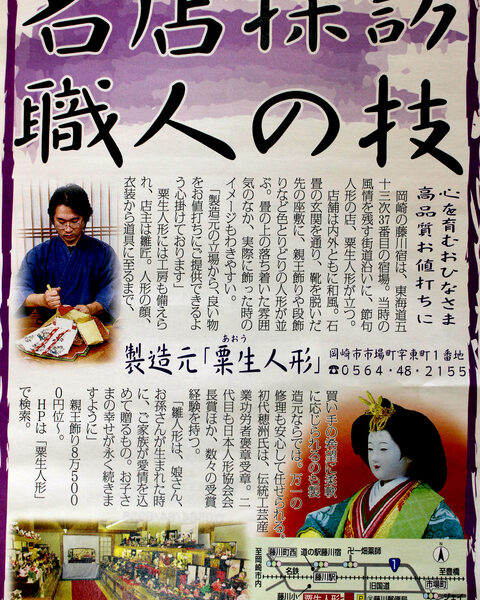 名店探訪
職人の技
心を育むおひなさま
高品質お値打ちに
岡崎の藤川宿は、東海道五
十三次37番目の宿場。当時の
風情を残す街道沿いに、節句
人形の店、粟生人形が立つ。
店舗は内外ともに和風。石
畳の玄関を通り、靴を脱いだ
先の座敷に、親王飾りや段飾
りなど色とりどりの人形が並
ぶ。畳の上の落ち着いた雰囲
気のなか、実際に飾った時の
イメージもわきやすい。
「製造元の立場から、良い物
をお値打ちにご提供できるよ
う心掛けております」
粟生人形には工房も備えら
れ、店主は雛匠。人形の顔、
衣装から道具に至るまで、
製造元「粟生人形」
あおう
岡崎市市場町字東町1番地
☎0564・48・2155
買い手の希望に柔軟
に応じられるのも製
造元ならでは。万一の
修理も安心して任せられる。
初代穂洲氏は、伝統工芸産
業功労者褒章受章。二
代目も日本人形協会会
長賞ほか、数々の受賞
経験を持つ。
「雛人形は、娘さん、
お孫さんが生まれた時
に、ご家族が愛情を込
めて贈るもの。お子さ
まの幸せが永く続きま
すように」
親王飾り8万500
0円位〜。
HPは「粟生人形」
で検索。
至岡崎市内
藤川町西
道の駅藤川宿
卍一畑薬師
1
至豊橋
名鉄
藤川駅
旧国道
市場町
藤川小
粟生人形
P
藤川郵便局